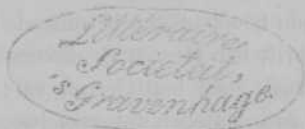 Littéraire
Societat,
's Gravenhage.